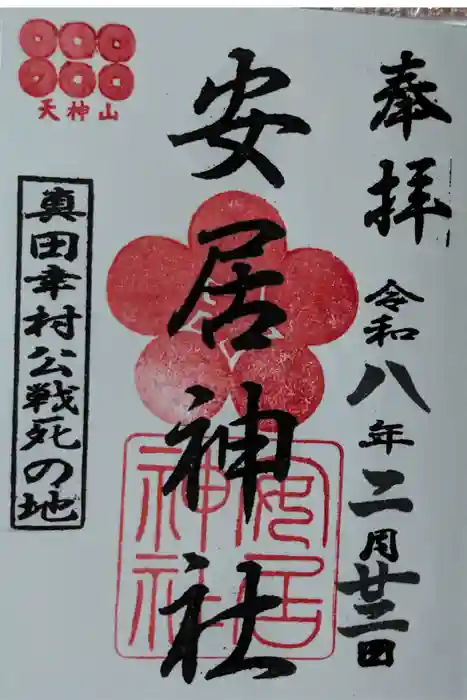 奉拝
令和八年二月廿二日
安居神社
安居
神社
天神山
真田幸村公戦死の地